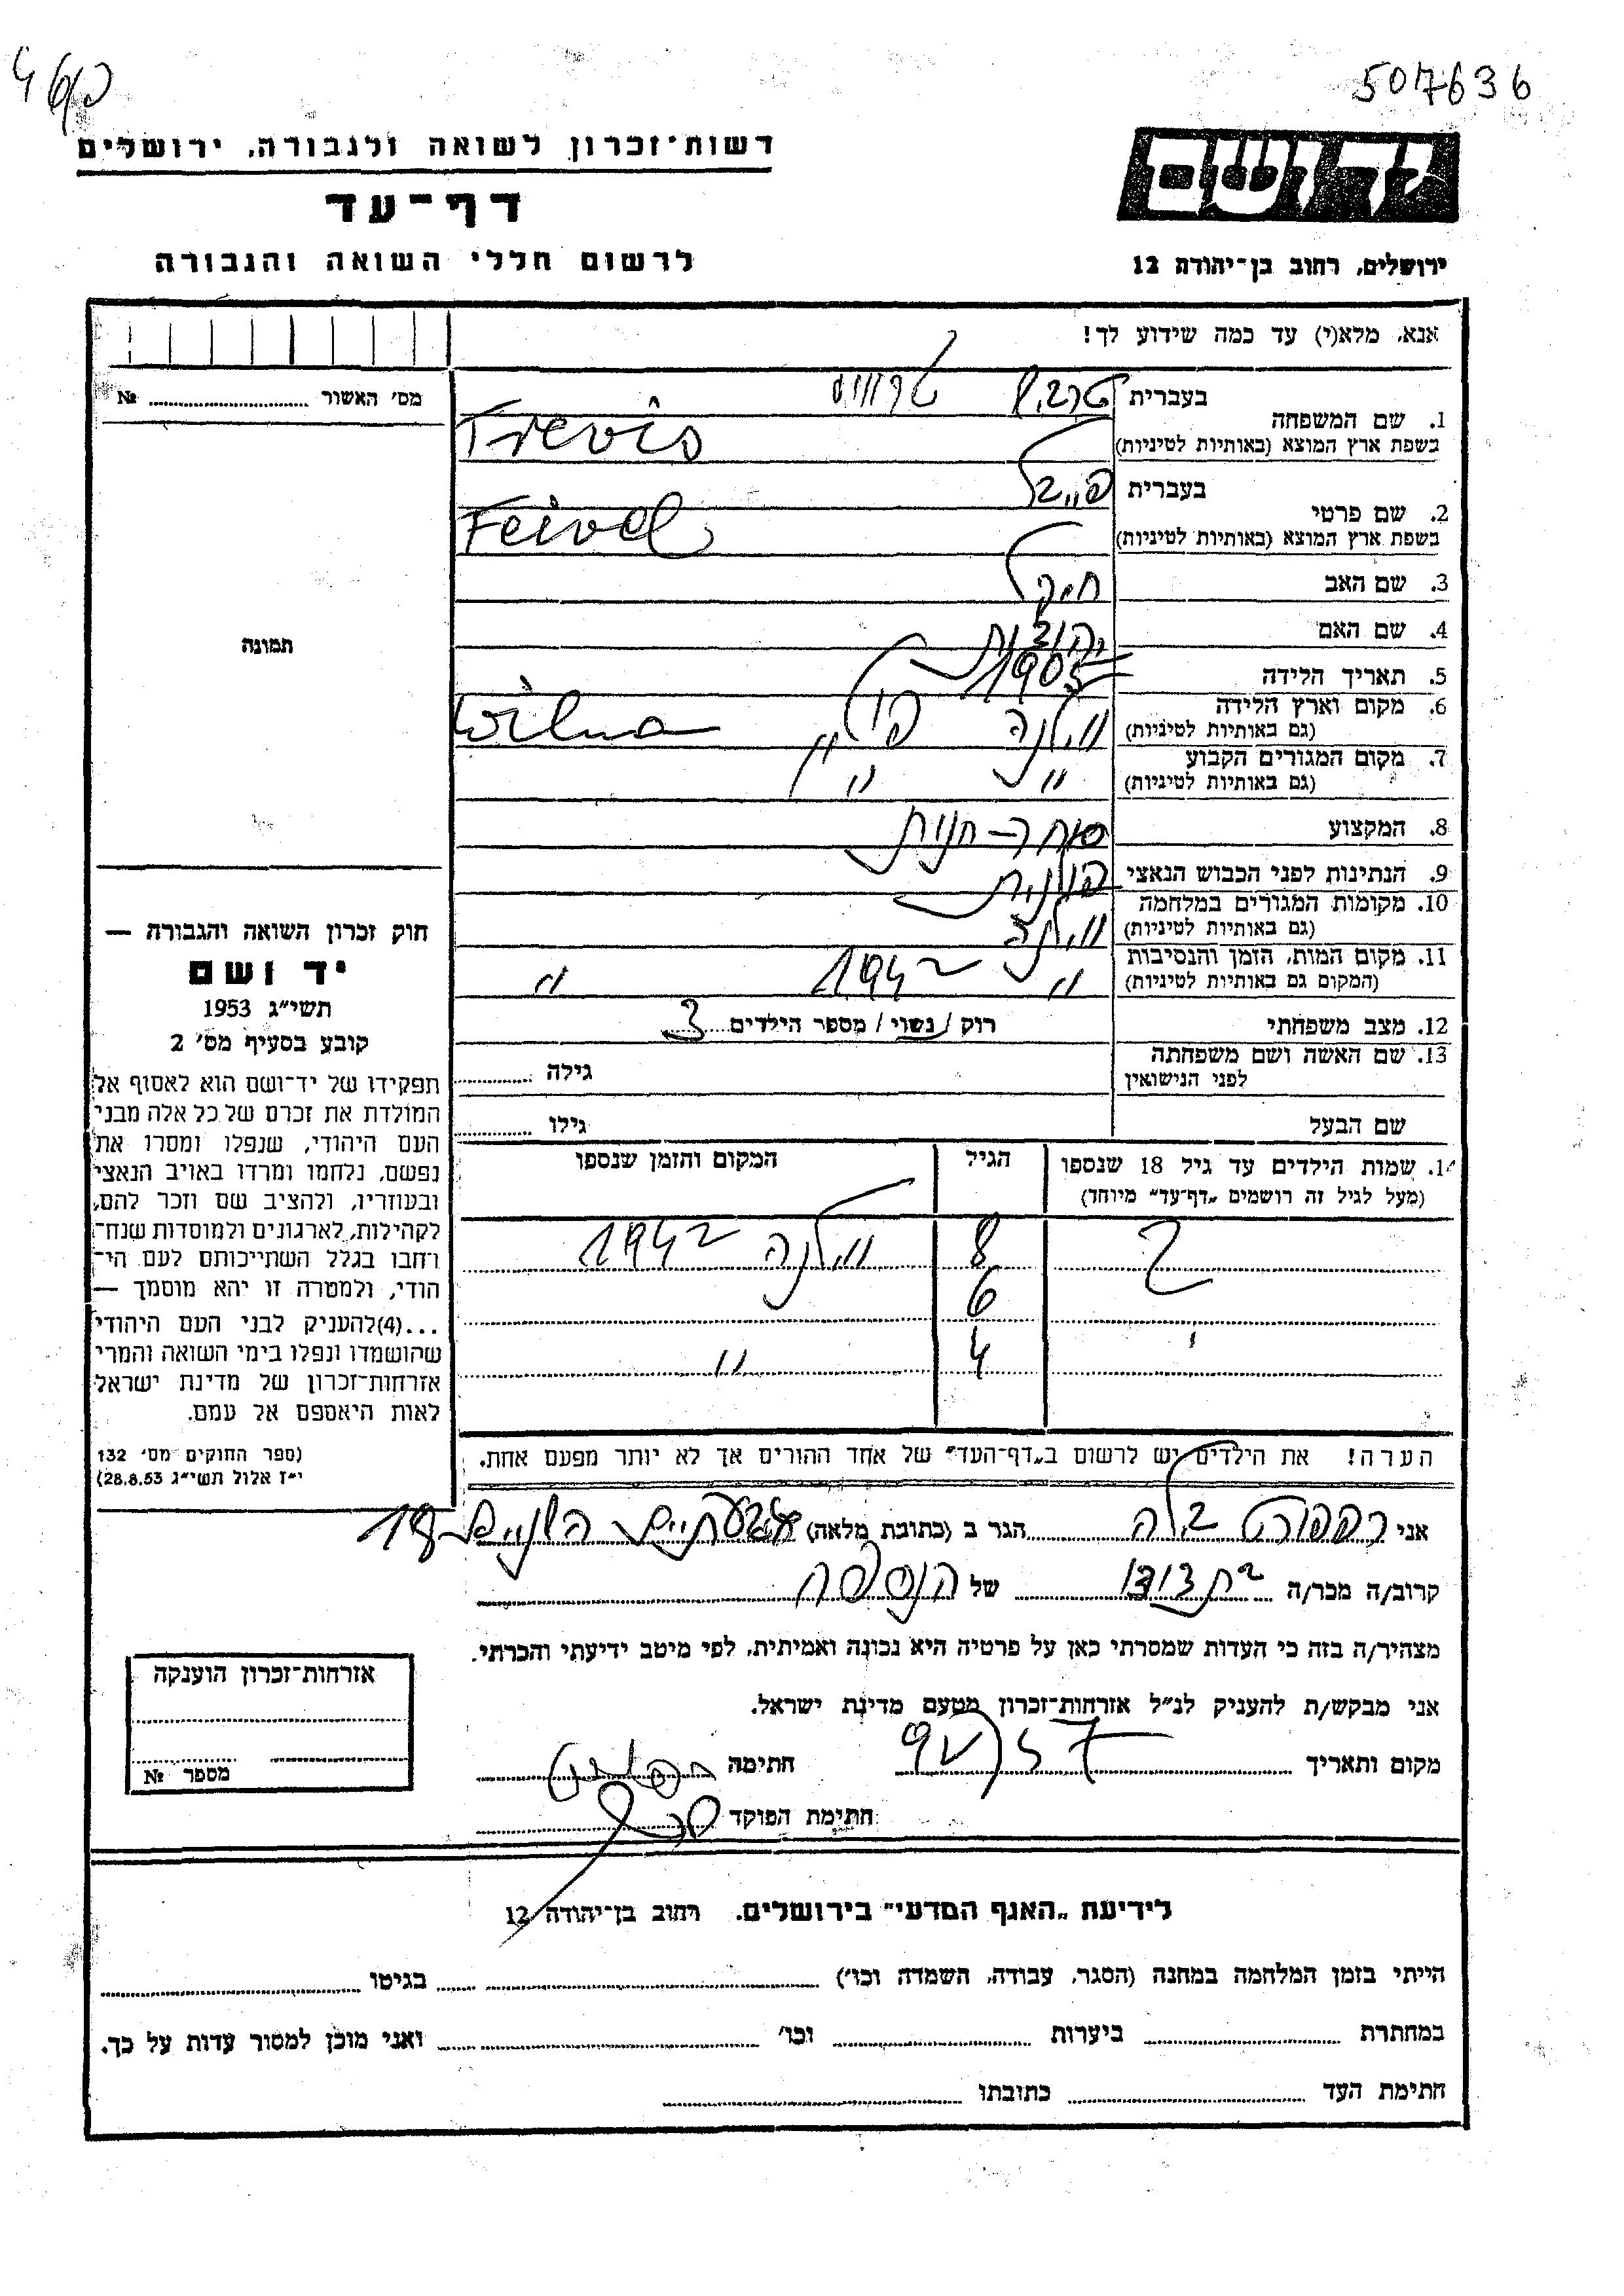 507636
רשות־זכרון לשואה ולגבורה, ירושלים
יד ושם
דף־עד
לרשום חללי השואה והגבורה
ירושלים, רחוב בן־יהודה 12
אנא, מלא(י) עד כמה שידוע לך!
מס׳ האשור № 
1. שם המשפחה
בעברית
בשפת ארץ המוצא (באותיות לטיניות) Trevis
2. שם פרטי
בעברית פייבל
בשפת ארץ המוצא (באותיות לטיניות) Feivel
3. שם האב
4. שם האם
5. תאריך הלידה 1905
6. מקום וארץ הלידה
(גם באותיות לטיניות) וילנה פולין Wilna
7. מקום המגורים הקבוע
(גם באותיות לטיניות) " "
8. המקצוע סוחר - חנות
9. הנתינות לפני הכבוש הנאצי פולנית
10. מקומות המגורים במלחמה
(גם באותיות לטיניות) וילנה
11. מקום המות, הזמן והנסיבות
(המקום גם באותיות לטיניות) " 1942 "
12. מצב משפחתי רוק / נשוי / מספר הילדים 3
13. שם האשה ושם משפחתה
לפני הנישואין גילה
שם הבעל גילו
14. שמות הילדים עד גיל 18 שנספו הגיל המקום והזמן שנספו
(מעל לגיל זה רושמים „דף־עד״ מיוחד)
8 וילנה 1942
6
4 "
הערה! את הילדים יש לרשום ב„דף־העד״ של אחד ההורים אך לא יותר מפעם אחת.
תמונה
חוק זכרון השואה והגבורה —
יד ושם
תשי״ג 1953
קובע בסעיף מס׳ 2
תפקידו של יד־ושם הוא לאסוף אל
המולדת את זכרם של כל אלה מבני
העם היהודי, שנפלו ומסרו את
נפשם, נלחמו ומרדו באויב הנאצי
ובעוזריו, ולהציב שם וזכר להם,
לקהילות, לארגונים ולמוסדות שנח־
רחבו בגלל השתייכותם לעם הי־
הודי, ולמטרה זו יהא מוסמך —
...(4)להעניק לבני העם היהודי
שהושמדו ונפלו בימי השואה והמרי
אזרחות־זכרון של מדינת ישראל
לאות היאספם אל עמם.
(ספר החוקים מס׳ 132
י״ז אלול תשי״ג 28.8.53)
אני רפפורט בלה הגר ב (כתובת מלאה) גבעתיים
קרוב/ה מכר/ה בת דודו של הנספה
מצהיר/ה בזה כי העדות שמסרתי כאן על פרטיה היא נכונה ואמיתית, לפי מיטב ידיעתי והכרתי.
אני מבקש/ת להעניק לנ״ל אזרחות־זכרון מטעם מדינת ישראל.
מקום ותאריך חתימה
חתימת הפוקד
אזרחות־זכרון הוענקה
מספר №
לידיעת „האגף המדעי״ בירושלים. רחוב בן־יהודה 12
הייתי בזמן המלחמה במחנה (הסגר, עבודה, השמדה וכו׳) בגיטו
במחתרת ביערות וכו׳ ואני מוכן למסור עדות על כך.
חתימת העד כתובתו